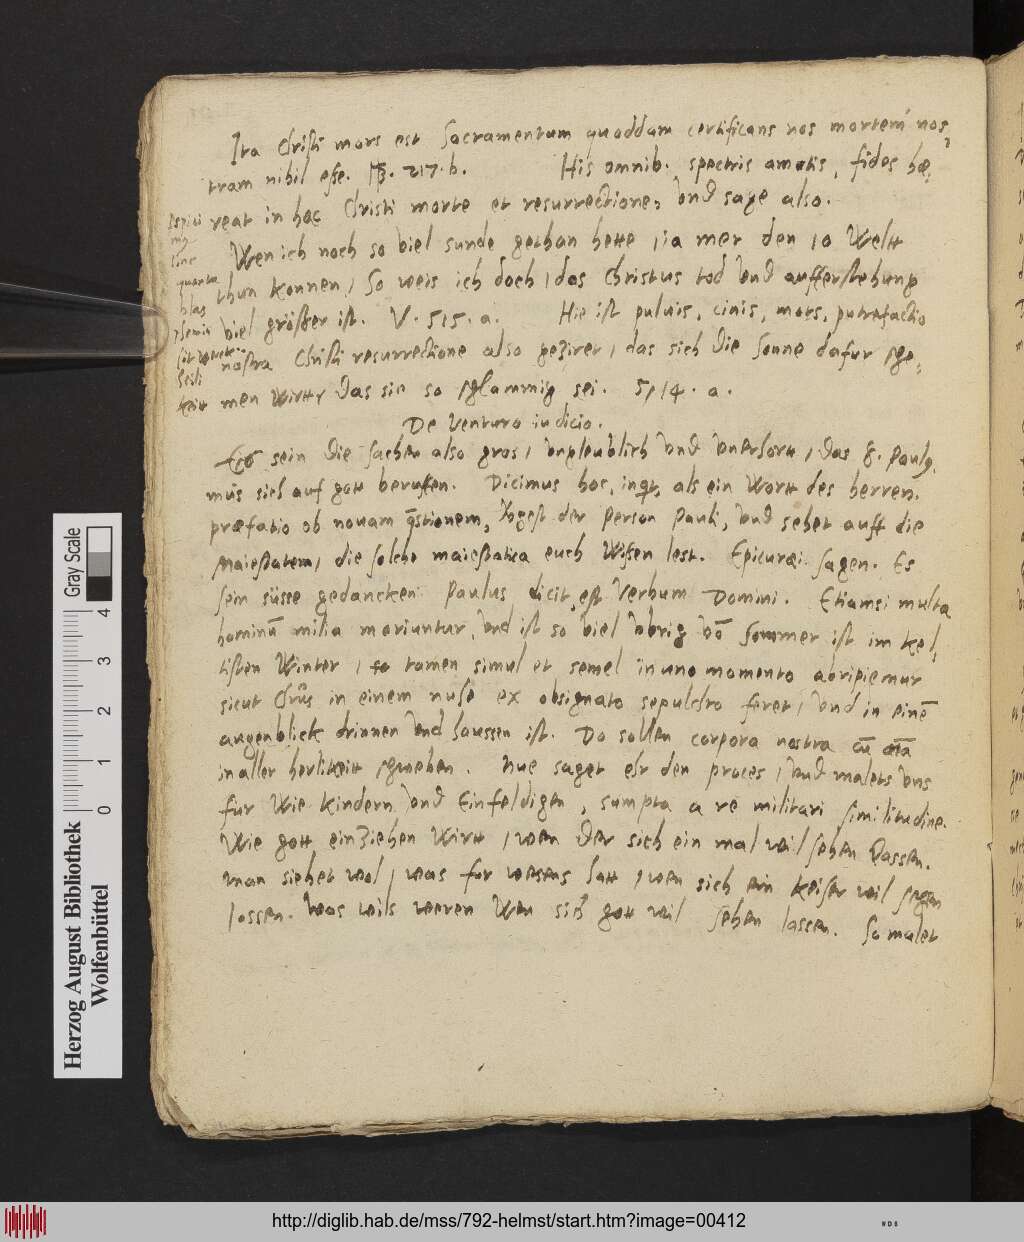 Ita Christi mors est Sacramentum quoddam certificans nos mortem nos,
tram nihil esse. 217. b. His omnib. spectris amotis, fides hæ,
reat in hac Christi morte et resurrectione, vnd sage also.
Wen ich noch so viel sunde gethan hette, ia mer den 10 Welt
thun konnen, So weis ich doch, das Christus tod vnd aufferstehung
viel grösser ist. V. 515. a. Hie ist puluis, cinis, mors, putrefactio
nostra Christi resurrectione also geziret, das sich die sonne dafur sche,
men wirtt, das sie so schlammig sei. 514. a.
De venturo iudicio.
Es sein die sachen also gros, vngleublich vnd vnerhortt, das S. Paulus
mus sich auf gott beruffen. Dicimus hoc, inquit, als ein Wortt des herren.
præfatio ob nouam qstionem, der Person Pauli, vnd sehet auff die
Maiestatem, die solche maiestatica euch Wissen lest. Epicuræi sagen. Es
sein süsse gedancken. Paulus dicit, est verbum Domini. Etiamsi multa
hominū milia moriuntur, vnd ist so viel vbrig vō Sommer ist im kel,
tisten Winter, tamen simul et semel in uno momento abripiemur
sicut Chrūs in einem nuhe ex obsignato sepulchro feret, vnd in einē
augenblick drinnen vnd haussen ist. Do sollen corpora nostra cū
in aller herlikeit schweben. Nue saget ehr den proces, vnd malets vns
fur Wie kindern vnd Einfeldigen, sumpta a re militari similitudine.
Wie gott einziehen Wirtt, wen der sich ein mal wil sehen lassen.
man siehet wol, was for wesens hatt, wen sich ein keiser wil sehen
lossen. Was wils weren Wen sich gott wil sehen lassen. So malet
Gray Scale
4 3 2 1 0
Herzog August Bibliothek
Wolfenbüttel
http://diglib.hab.de/mss/792-helmst/start.htm?image=00412